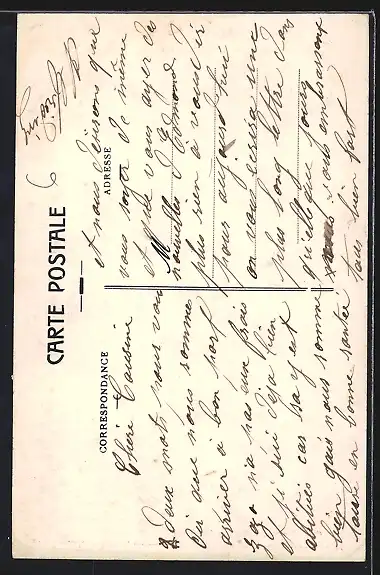 CARTE POSTALE
CORRESPONDANCE
ADRESSE
Chère Cousine
deux mots pour vous
que nous somme
arriver à bon port
il n'a pas eu froid
et je sui déja bien
car sa y est
bien quis nous somme
tous en bonne santée
et nous désirons que
vous soyer de même
et que vous ayer des
nouvelles d'Edmond
plus rien a vous dir
pour aujourd'hui
on vous écrira une
plus long lettre dans
quelque jours
vous embrassent
tous bien fort